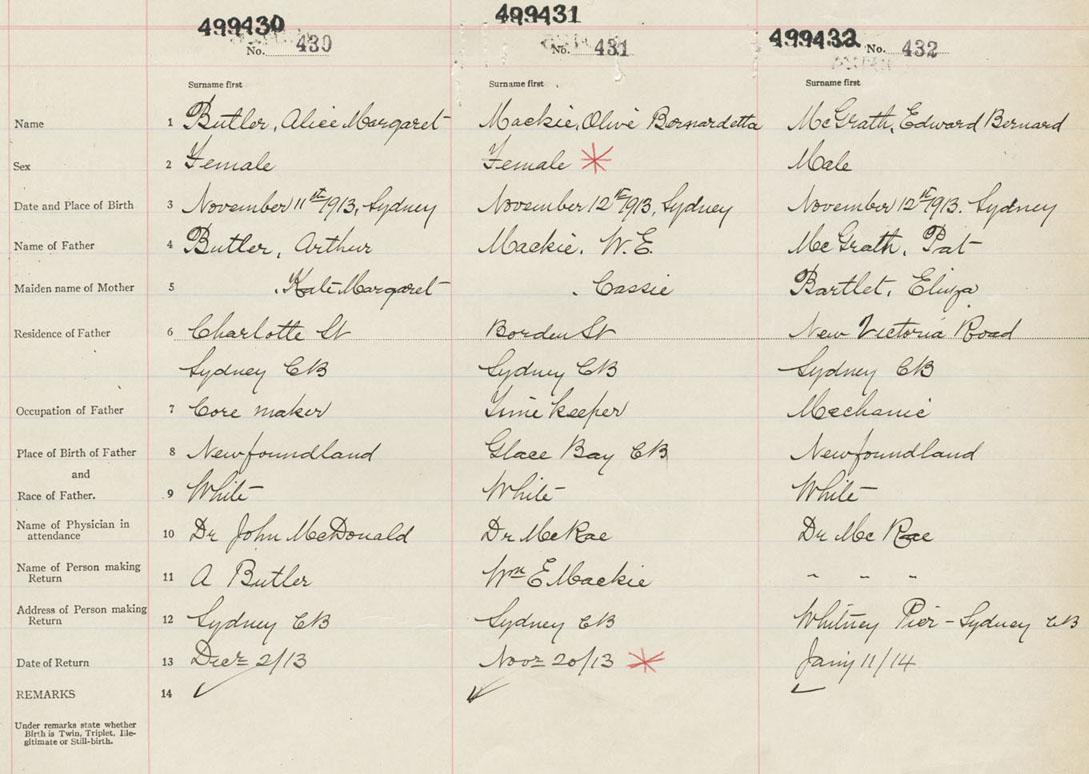 499430 499431 499432
No. 430 No. 431 No. 432
Surname first Surname first Surname first
Name 1 Butler, Alice Margaret Mackie, Olive Bernardetta McGrath, Edward Bernard
Sex 2 Female Female * Male
Date and Place of Birth 3 November 11st 1913, Sydney November 12th 1913, Sydney November 12th 1913. Sydney
Name of Father 4 Butler, Arthur Mackie, W. E. McGrath, Pat
Maiden name of Mother 5 , Kate Margaret , Cassie Bartlet, Eliza
Residence of Father 6 Charlotte St Borden St New Victoria Road
Sydney CB Sydney CB Sydney CB
Occupation of Father 7 Core maker Time keeper Mechanic
Place of Birth of Father 8 Newfoundland Glace Bay CB Newfoundland
and
Race of Father. 9 White White White
Name of Physician in
attendance 10 Dr John McDonald Dr McRae Dr Mc Rae
Name of Person making
Return 11 A Butler Wm E Mackie " " "
Address of Person making
Return 12 Sydney CB Sydney CB Whitney Pier - Sydney CB
Date of Return 13 Decr 2/13 Novr 20/13 * Jany 11/14
REMARKS 14 ✓ ✓ ✓
Under remarks state whether
Birth is Twin, Triplet, Ille-
gitimate or Still-birth.